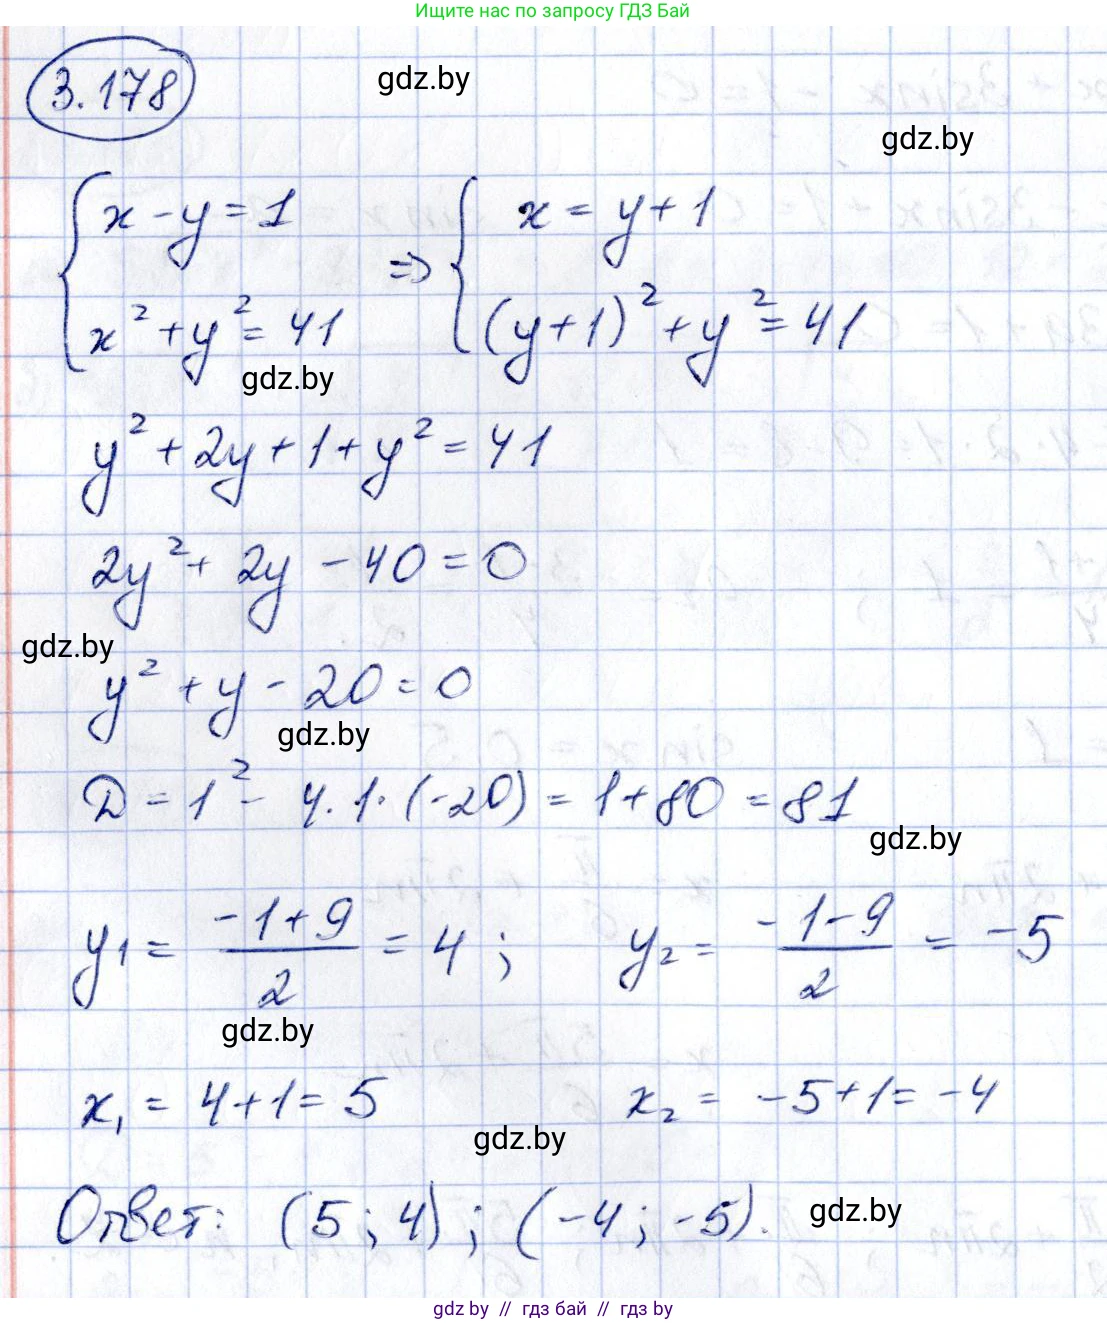 Ищите нас по запросу ГДЗ Бай
3.178
gdz.by
gdz.by
{ x - y = 1 ⇒ { x = y + 1
x² + y² = 41 (y + 1)² + y² = 41
gdz.by
y² + 2y + 1 + y² = 41
2y² + 2y - 40 = 0
gdz.by
y² + y - 20 = 0
gdz.by
D = 1² - 4·1·(-20) = 1 + 80 = 81
gdz.by
y₁ = (-1+9)/2 = 4 ; y₂ = (-1-9)/2 = -5
gdz.by
x₁ = 4+1 = 5 x₂ = -5+1 = -4
gdz.by
Ответ: (5; 4); (-4; -5).
gdz.by
gdz by // гдз бай // гдз by